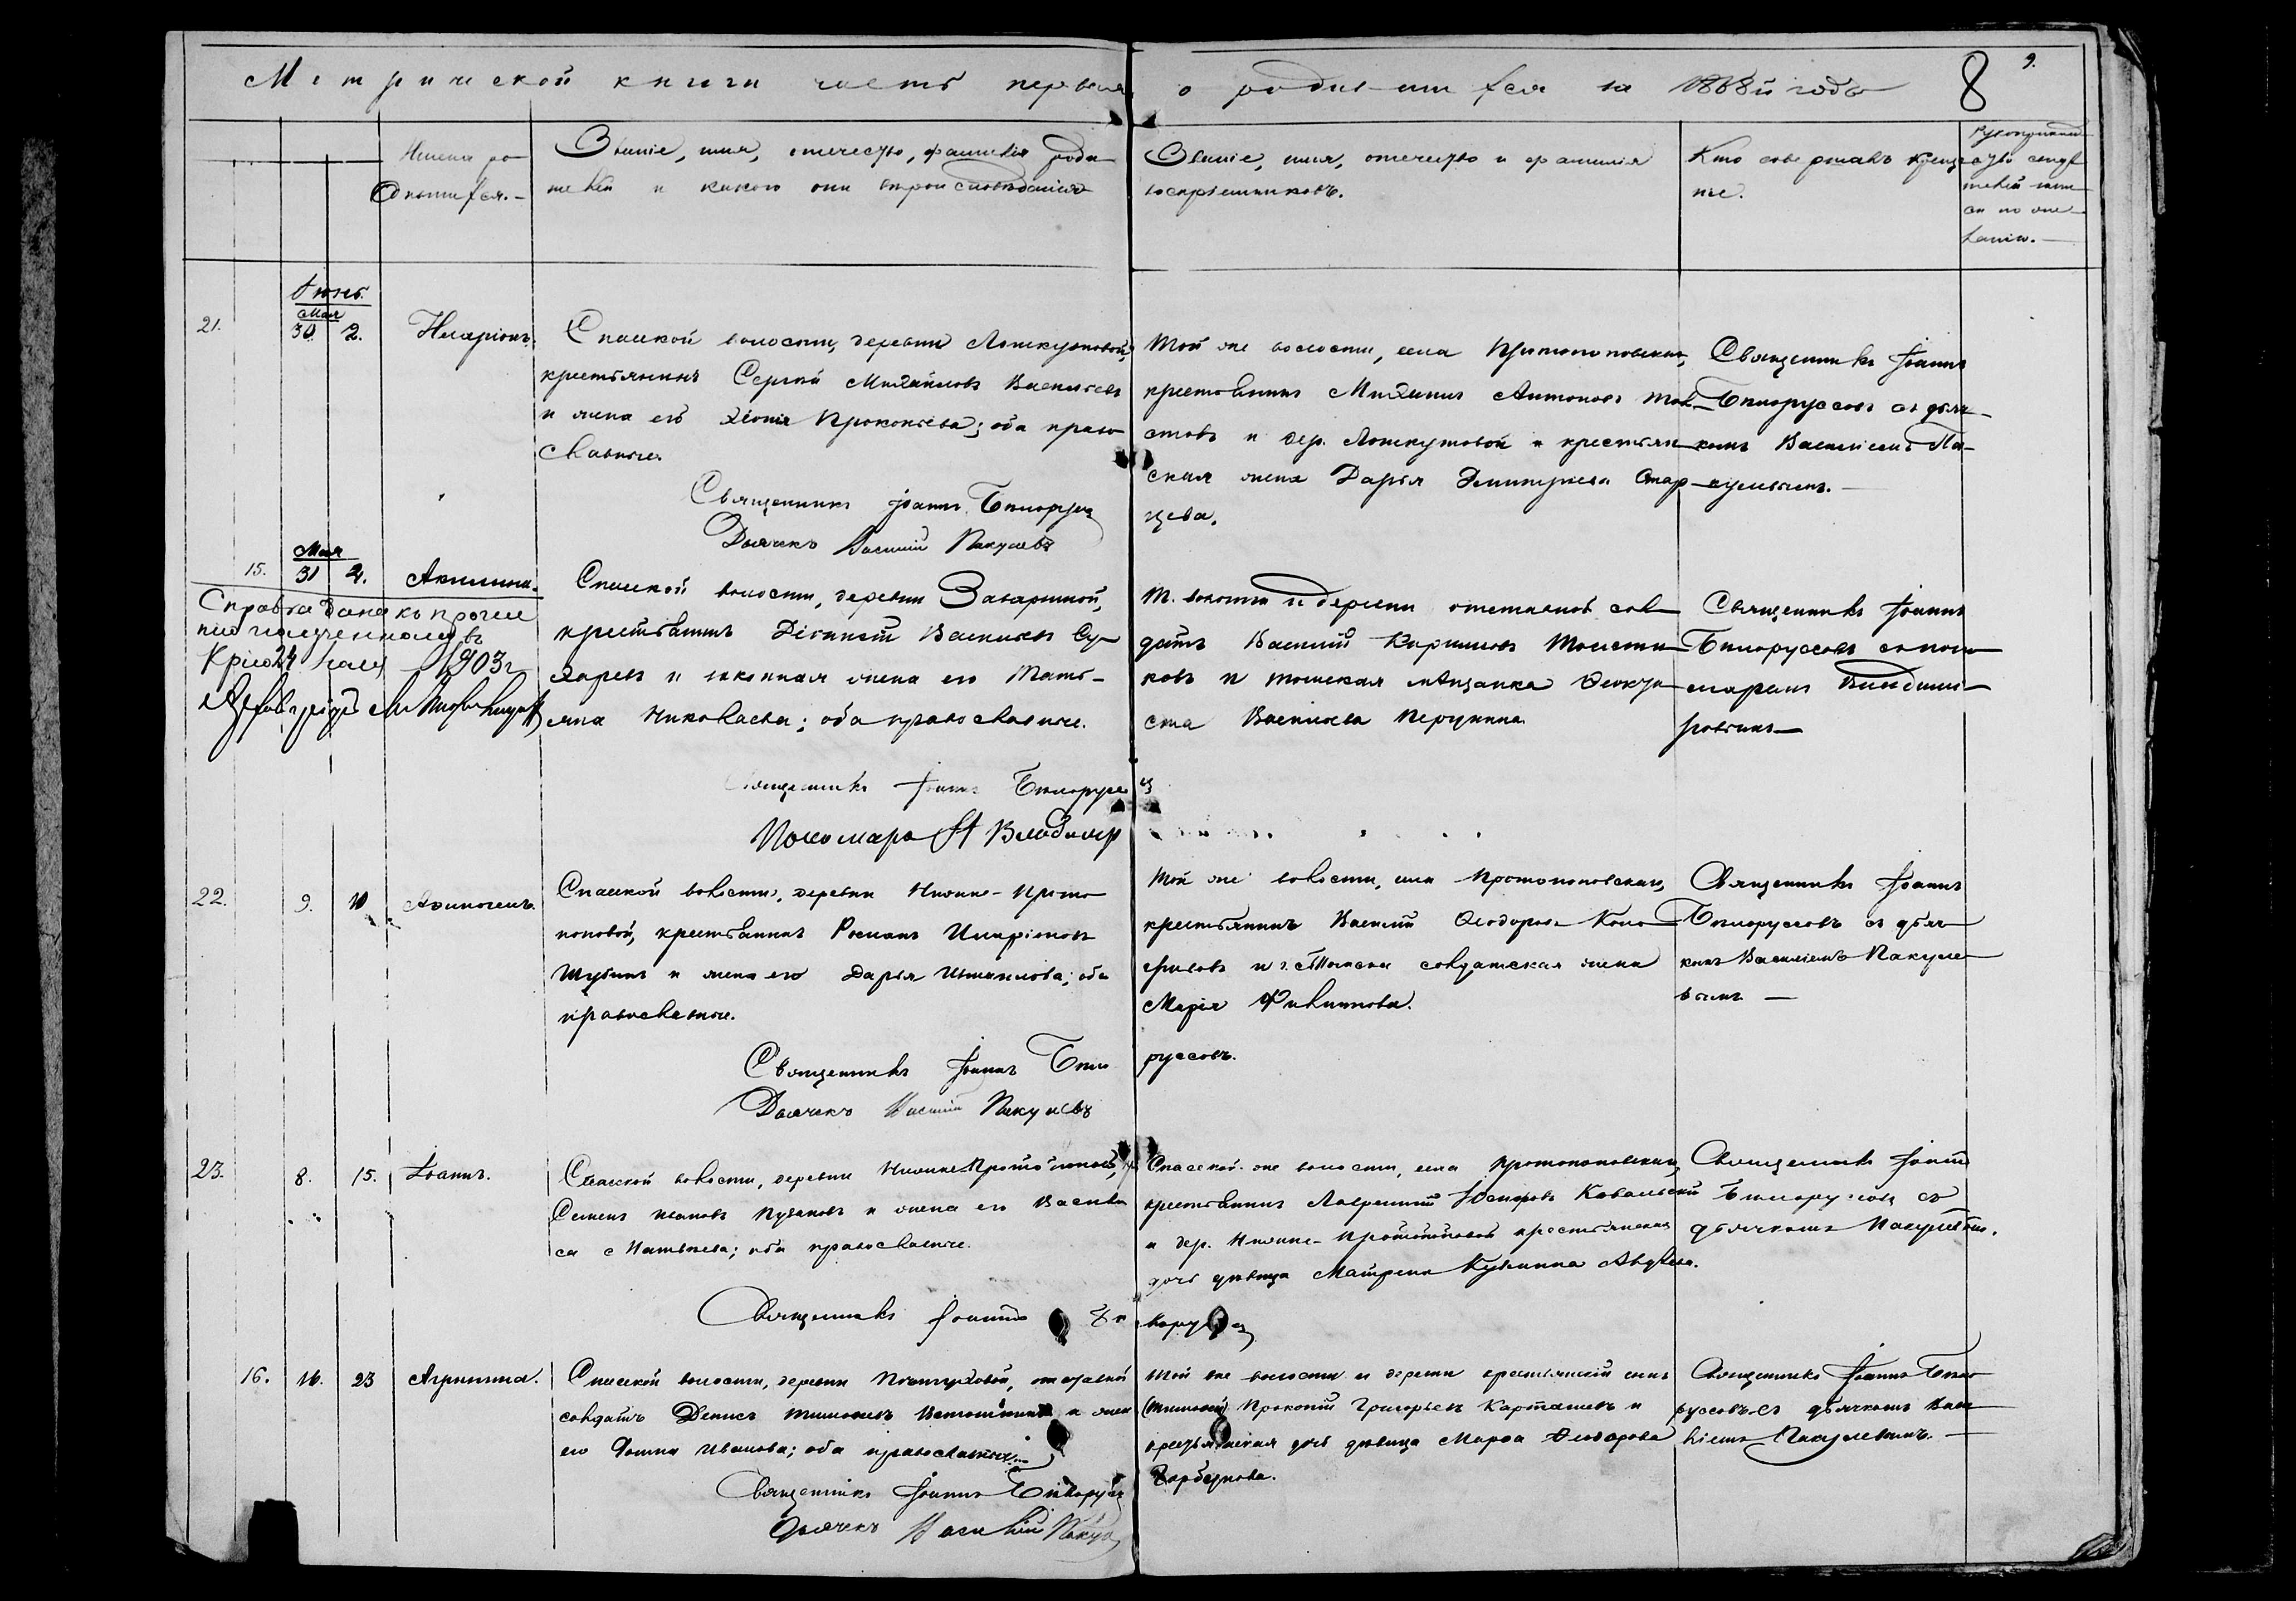 Метрической книги часть первая о родившихся за 1868й годъ
8
9.
Имена ро-
дившихся.-
Званіе, имя, отечество, фамилія роди-
телей и какого они вѣроисповѣданія
Званіе, имя, отечество и фамилія
воспріемниковъ.
Кто совершалъ креще-
ніе.
Рукоприклад-
ство свидѣ-
телей записи
по же-
ланію.
Іюнь.
Мая
21.
30. 2.
Иларіонъ.
Спасской волости, деревни Лоскутовой,
крестьянинъ Сергѣй Михайловъ Васильевъ
и жена его Хіонія Прокопьева; оба право-
славные.
Священникъ Іоаннъ Бѣлоруссовъ
Дьячекъ Василій Пакулевъ
Той же волости, села Протопоповскаго,
крестьянинъ Михаилъ Антоновъ Тол-
стовъ и дер. Лоскутовой крестьян-
ская жена Дарья Димитріева Стар-
цева.
Священникъ Іоаннъ
Бѣлоруссовъ съ дьяч-
комъ Василіемъ Па-
кулевымъ.
Мая
15.
31 2.
Акилина.
Справка дана къ проше-
нію
24 1903г
Спасской волости, деревни Заварзиной,
крестьянинъ Діонисій Васильевъ Су-
харевъ и законная жена его Тать-
яна Николаева; оба православные.
Священникъ Іоаннъ Бѣлоруссовъ
Пономарь Владимір
Т. волости и деревни отставной сол-
датъ Василій Кириловъ Толсти-
ковъ и томская мѣщанка Ѳеокти-
ста Васильева Перунина.
Священникъ Іоаннъ
Бѣлоруссовъ съ поно-
маремъ Владимі-
ровымъ
22.
9. 10
Аѳиногенъ.
Спасской волости, деревни Нижне-Прото-
поповой, крестьянинъ Романъ Иларіоновъ
Шубинъ и жена его Дарья Измаилова; оба
православные.
Священникъ Іоаннъ Бѣло-
руссовъ.
Дьячекъ Василій Пакулевъ
Той же волости, села Протопоповскаго,
крестьянинъ Василій Ѳеодоровъ Коно-
и г. Томска солдатская жена
Марія Филиппова.
Священникъ Іоаннъ
Бѣлоруссовъ съ дьяч-
комъ Василіемъ Пакуле-
вымъ
23.
8. 15.
Іоаннъ.
Спасской волости, деревни Нижне-Протопоповой,
Семенъ Ивановъ Пузановъ и жена его Васили-
са Матвѣева; оба православные.
Священникъ Іоаннъ Бѣлоруссовъ
Спасской же волости, села Протопоповскаго,
крестьянинъ Лаврентій Іосифовъ Ковальскій
и дер. Нижне-Протопоповой крестьянская
дочь дѣвица Матрена Кузьмина Авдѣева.
Священникъ Іоаннъ
Бѣлоруссовъ съ
дьячкомъ Пакулевымъ.
16.
16. 23
Агрипина.
Спасской волости, деревни отставной
солдатъ Денисъ Тимоѳеевъ и жена
его Фотина Иванова; оба православные.
Священникъ Іоаннъ Бѣлоруссовъ
Дьячекъ Василій Пакулевъ
Той же волости и деревни крестьянскій сынъ
Прокопій Григорьевъ Карташевъ и
крестьянская дочь дѣвица Марѳа Ѳеодорова
Горбунова.
Священникъ Іоаннъ Бѣло-
руссовъ съ дьячкомъ Васи-
ліемъ Пакулевымъ.